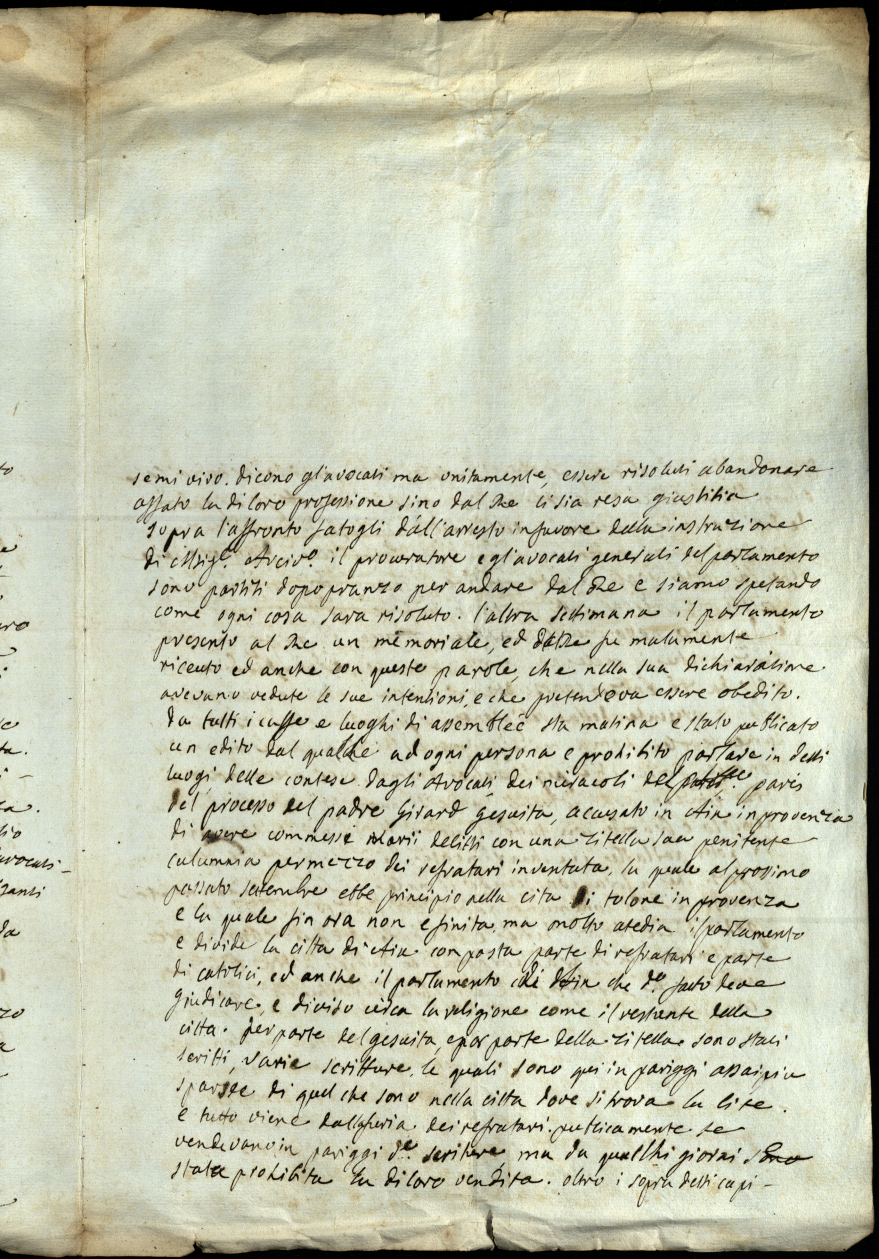 semi vivo. dicono gl'avocati ma unitamente, essere risoluti abandonare
affato la di loro professione sino dal Re li sia resa giustitia
sopra l'affronto fatogli dall'arresto in favore della instruzione
di Msig.r Arciv.o il procuratore e gl'avocati generali del parlamento
sono partiti dopo pranzo per andare dal Re e siamo spetando
come ogni cosa sara risoluto. l'altra settimana il parlamento
presento al Re un memoriale, ed dal Re fu malamente
riceuto ed anche con queste parole, che nella sua dichiaratione
avevano vedute le sue intenzioni, e che pretendeva essere obedito.
da tutti i caffe e luoghi di assemblee sta matina e stato publicato
un edito dal qualche ad ogni persona e prohibito parlare in detti
luogi, delle contese dagli Avocati, dei miracoli del paris
del processo del padre Girard gesuita, accusato in Aix in provenza
di avere commessi varii delitti con una zitella sua penitente
calumnia per mezzo dei refratari inventata, la quale al prosimo
passato setembre ebbe principio nella cita di tolone in provenza
e la quale fin ora non e finita, ma molto atedia il parlamento
e divide la citta di Aix composta parte di refratari e parte
di catolici, ed anche il parlamento di Aix che d.o fato deve
giudicare, e diviso circa la religione come il restante della
citta. per parte del gesuita, e par parte della zitella sono stati
scritti, varie scritture, le quali sono qui in pariggi assai piu
sparse di quel che sono nella citta dove si trova la lite.
e tutto viene dalla furia dei refratari. publicamente se
vendevano in pariggi d.e scriture ma da qualchi giorni sono
state prohibita la di loro vendita. oltro i sopra detti capi-